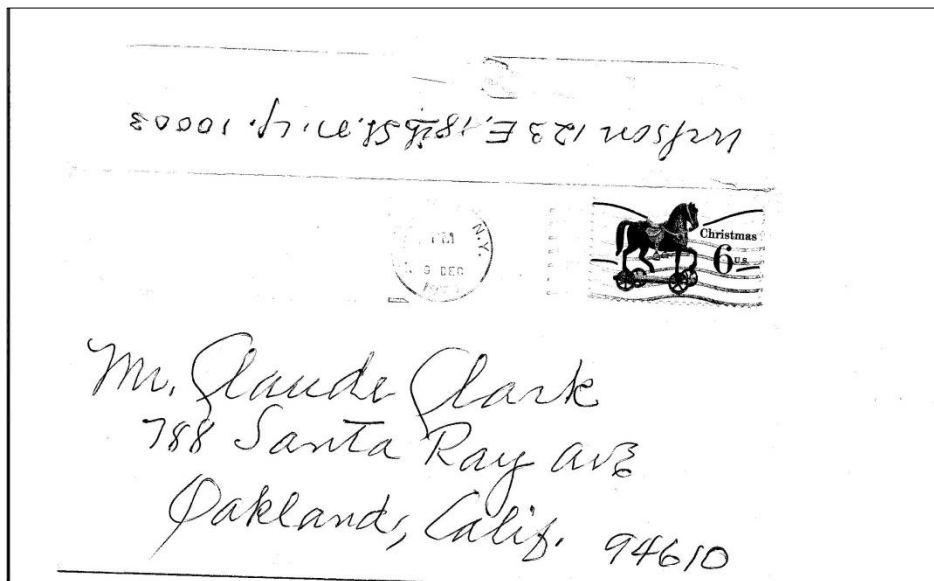 Wilson 123 E, 18th St. N.Y. 10003
PM
N.Y.
9 DEC
Christmas
6 U.S.
Mr. Claude Clark
788 Santa Ray Ave
Oakland, Calif. 94610